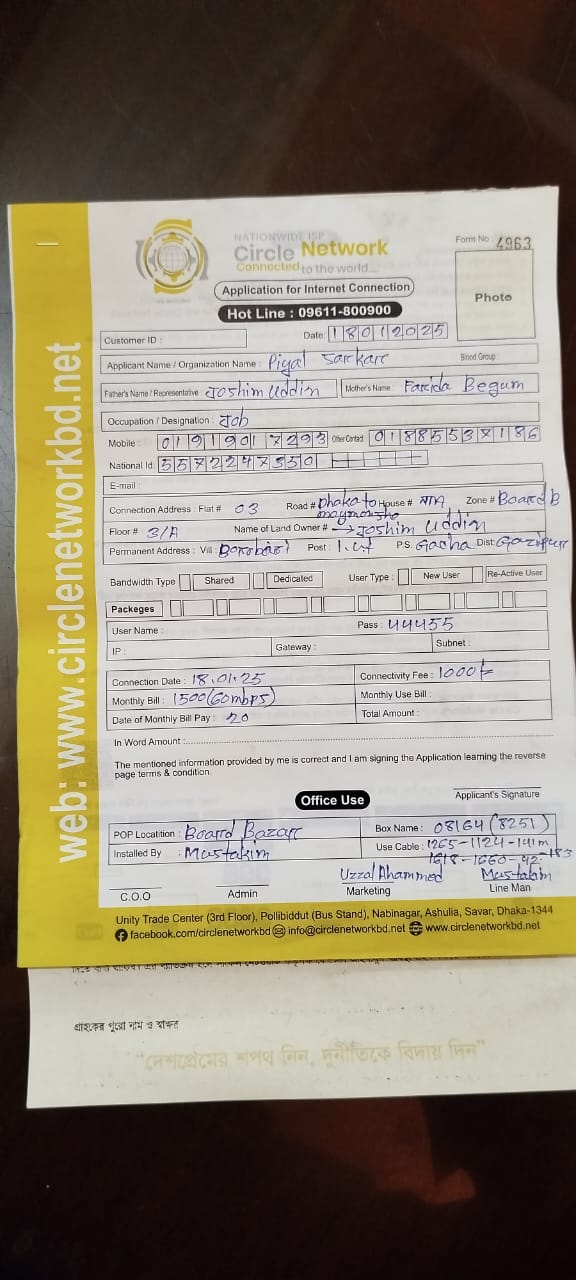 NATIONWIDE ISP
Circle Network
Connected to the world...
Form No : 4963
Application for Internet Connection
Photo
Hot Line : 09611-800900
Customer ID :
Date: 18012025
Applicant Name / Organization Name : Piyal Sarkare
Blood Group :
Father's Name / Representative Joshim Uddin
Mother's Name Farida Begum
Occupation / Designation : Job
Mobile : 01919017293 Other Contact 01885537186
National Id 5572247350
E-mail
Connection Address : Flat # 03 Road # Dhaka to House # N/A Zone # Board B
Floor # 3/A Name of Land Owner # → Joshim Uddin
Permanent Address : Vill : Borobari Post : P.S. Gacha Dist: Gazipur
Bandwidth Type Shared Dedicated User Type : New User Re-Active User
Packeges
User Name : Pass : 44455
IP : Gateway : Subnet :
Connection Date : 18.01.25 Connectivity Fee : 1000/=
Monthly Bill : 1500 (60mbps) Monthly Use Bill :
Date of Monthly Bill Pay : 20 Total Amount :
In Word Amount :
The mentioned information provided by me is correct and I am signing the Application learning the reverse
page terms & condition.
Office Use
Applicant's Signature
POP Locatition : Board Bazar Box Name : 08164 (8251)
Installed By : Mustakim Use Cable : 1265-1124-141m
1618-1660-42-183
Uzzal Ahammed Mustakim
C.O.O Admin Marketing Line Man
Unity Trade Center (3rd Floor), Pollibiddut (Bus Stand), Nabinagar, Ashulia, Savar, Dhaka-1344
facebook.com/circlenetworkbd info@circlenetworkbd.net www.circlenetworkbd.net
web: www.circlenetworkbd.net
গ্রাহকের পুরো নাম ও স্বাক্ষর
"দেশপ্রেমের শপথ নিন, দুর্নীতিকে বিদায় দিন"